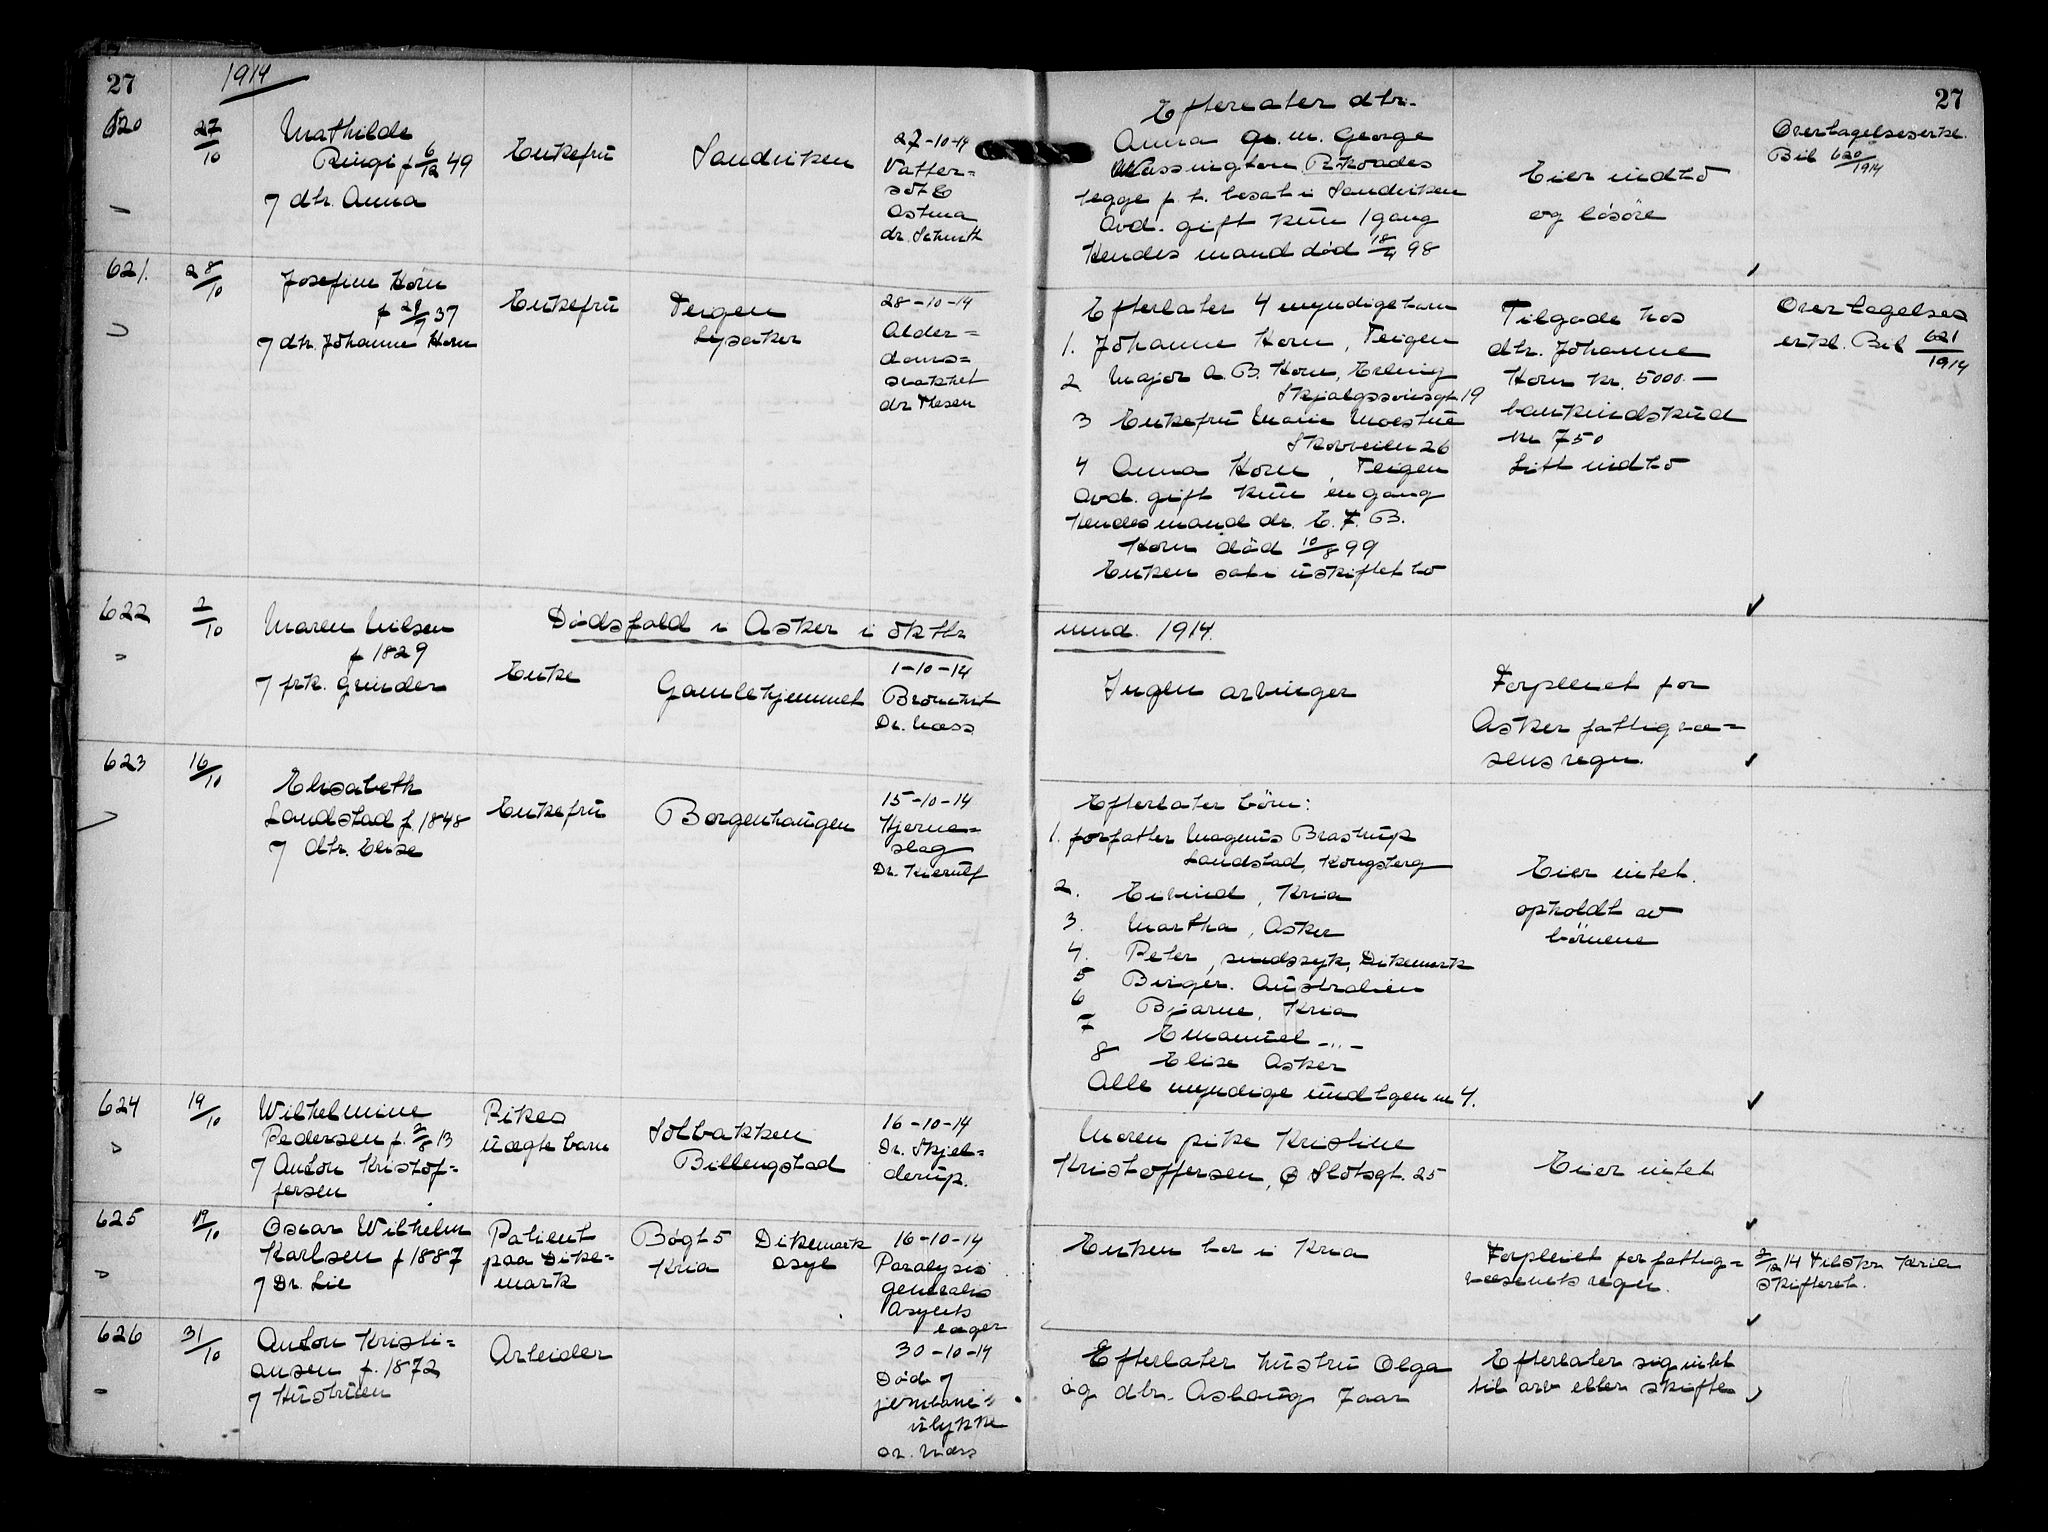 27
1914
27
620
27/10
Mathilde
Ringi f 6/12 49
7 dtr. Anna
Enkefru
Sandviken
27-10-14
Vatter=
sot &
Astma
dr. Schmth
Efterlater dtr.
Anna g. m. George
Wassington Rkoades
begge p. t. bosat i Sandviken
Avd. gift kun 1 gang
Hendes mand død 18/4 98
Eier indbo
og løsøre
Overtagelseserkl.
Bil 620/1914
621.
28/10
Josefine Horn
f 29/7 37
7 dtr. Johanne Horn
Enkefru
Teigen
Lysaker
28-10-14
Alder=
doms=
svakhet
dr Thesen
Efterlater 4 myndige barn
1. Johanne Horn, Teigen
2 Major A. B. Horn, Erling
Skjalgssønsgt 19
3 Enkefru Marie Moestue
Skovveien 26
4 Anna Horn, Teigen
Avd. gift kun én gang
Hendes mand dr. E. F. B.
Horn død 10/8 99
Enken sat i uskiftet bo
Tilgode hos
dtr. Johanne
Horn kr. 5000.—
bankindskud
kr 750
Litt indbo
Overtagelses
erkl. Bil 621/1914
Dødsfald i Asker i oktbr
mnd. 1914.
622
2/10
Maren Nilsen
f 1829
7 frk. Grinder
Enke
Gamlehjemmet
1-10-14
Bronchit
Dr. Næss
Ingen arvinger
Forpleiet for
Asker fattigvæ=
sens regn.
623
16/10
Elisabeth
Landstad f 1848
7 dtr. Elise
Enkefru
Borgenhaugen
15-10-14
Hjerne=
slag
Dr. Kierulf
Efterlater børn:
1. forfatter Magnus Brostrup
Landstad, Kongsberg
2. Eivind, Kria
3. Martha, Asker
4. Peter, sindssyk, Dikemark
5 Birger. Australien
6 Bjarne, Kria
7 Emanuel -"-
8 Elise Asker
Alle myndige undtgen nr 4.
Eier intet.
opholdt av
børnene
624
19/10
Wilhelmine
Pedersen f. 2/8 13
7 Anton Kristof=
fersen
Pikes
uægte barn
Solbakken
Billingstad
16-10-14
Dr. Skjel=
derup.
Moren pike Kristine
Kristoffersen, Ø Slotsgt. 25
Eier intet
625
19/10
Oscar Wilhelm
Karlsen f 1887
7 Dr. Lie
Patient
paa Dike=
mark
Bøgt 5
Kria
Dikemark
asyl
16-10-14
Paralysis
generalis
Asylets
læger
Enken bor i Kria
Forpleiet for fattig=
væsenets regn.
2/12 14 tilskr. Kria
skifteret.
626
31/10
Anton Kristi=
ansen f. 1872
7 Hustruen
Arbeider
30-10-14
Død v
jernbane=
ulykke
dr. Næss
Efterlater hustru Olga
og dtr. Aslaug 7 aar
Efterlater sig intet
til arv eller skifte